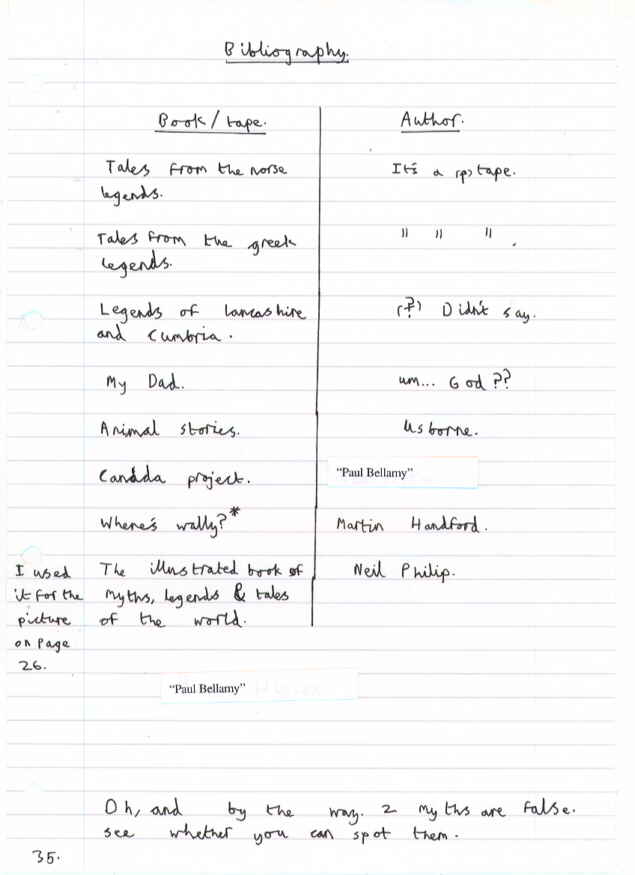 Bibliography.
Book/tape. Author.
Tales from the norse It's a (p) tape.
legends.
Tales from the greek " " " .
legends.
Legends of lancashire (?) Didn't say.
and Cumbria.
My Dad. um... God??
Animal stories. Usborne.
Canada project. "Paul Bellamy"
Where's wally?* Martin Handford.
I used The illustrated book of Neil Philip.
it for the myths, legends & tales
picture of the world.
on Page
26.
"Paul Bellamy"
Oh, and by the way. 2 myths are false.
see whether you can spot them.
35.